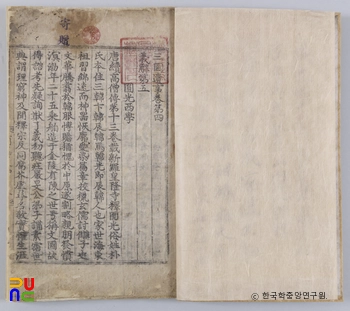 寄贈
三國遺事卷第四
義解第五
圓光西學
唐續高僧傳第十三卷載新羅皇隆寺釋圓光俗姓朴
氏本住三韓卞韓辰韓馬韓光即辰韓人也家世海東
祖習綿遠而神器恢廓愛染篇章校獵玄儒討讎子史
文華騰翥於韓服博贍猶愧於中原遂割略親朋發憤
溟渤年二十五乘舶造于金陵有陳之世號稱文國故
得諮考先疑詢猷了義初聽莊嚴旻公弟子講素霑世
典謂理窮神及聞釋宗反同腐芥虛尋名教實懼生涯
ⓒ 한국학중앙연구원